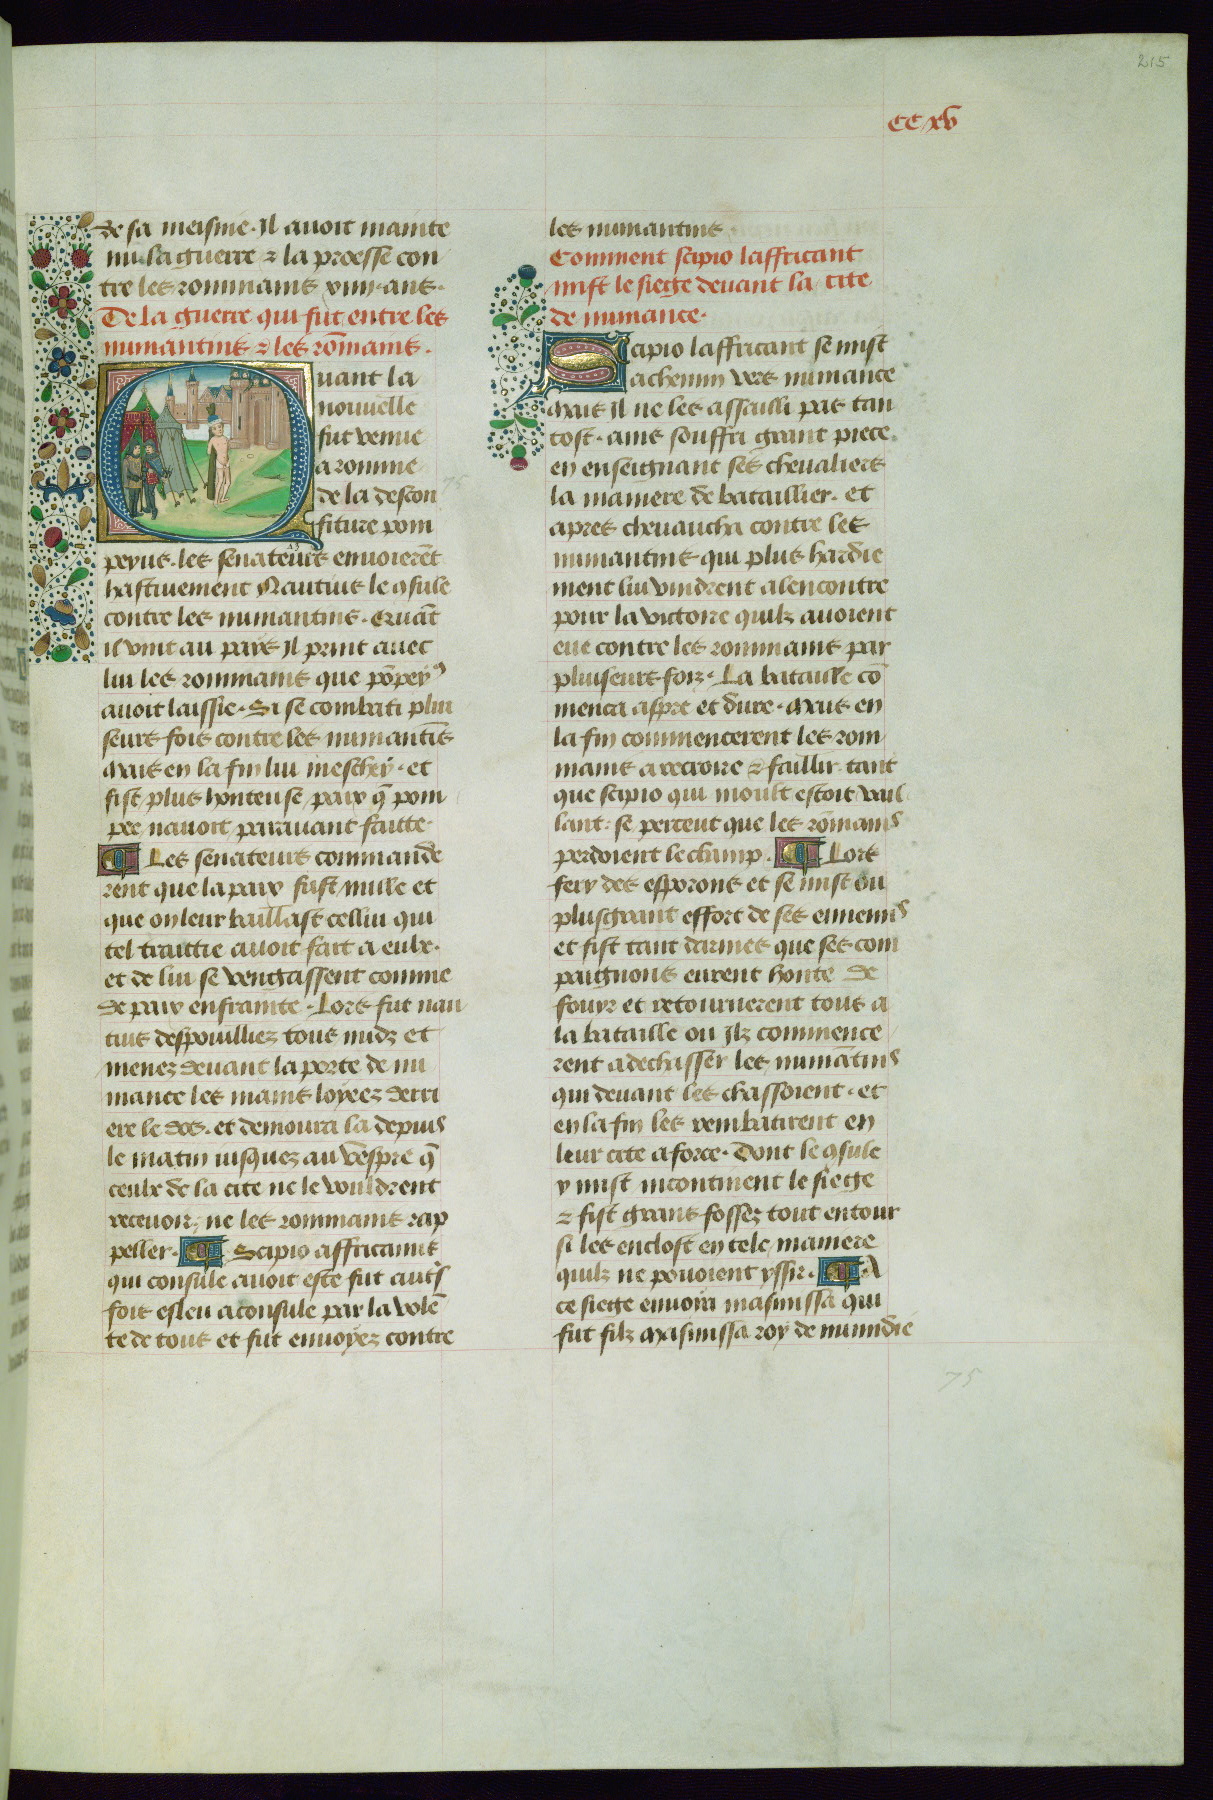 215
CC xv
de sa meisme. Il auoit mainte
nu sa guerre & la proesse con
tre les rommains xiiii ans.
De la guerre qui fut entre les
numantins & les rōmains.
Quant la
nouuelle
fut venue
a romme
de la descon
fiture pom
peyus. les senateurs enuoierēt
hastiuement Nautius le ꝯsule
contre les numantins. Quāt
il vint au pais Il print auec
lui les rommains que pōpeyꝰ
auoit laissie. Si se combati plui
seurs fois contre les numantīs
Mais en la fin lui meschey. et
fist plus honteuse paix q̄ pom
pee nauoit parauant faitte.
Les senateurs commande
rent que la paix fust nulle et
que on leur baillast cellui qui
tel traittie auoit fait a eulx.
et de lui se vengassent comme
de paix enfrainte. Lors fut nau
tius despouilliez tous nudz et
menez deuant la porte de nu
mance les mains loyeez derri
ere le dos. et demoura la depuis
le matin iusquez au vespre q̄
ceulx de la cite ne le vouldrent
receuoir, ne les rommains rap
peller. Scipio affricanus
qui consule auoit este fut aut̄s
fois esleu a consule par la volē
te de tous et fut enuoyez contre
les numantins
Comment scipio laffricant
mist le siege deuant la cite
de numance.
Scipio laffricant se mist
a chemin vers numance
Mais il ne les assailli pas tan
tost. ains souffri grant piece
en enseignant ses cheualiers
la maniere de bataillier. et
apres cheuaucha contre les
numantins qui plus hardie
ment lui vindrent alencontre
pour la victoire quilz auoient
eue contre les rommains par
pluiseurs foiz. La bataille cō
menca aspre et dure. Mais en
la fin commencerent les rom
mains a recroire & faillir. tant
que scipio qui moult estoit vail
lant. se perceut que les rōmains
perdoient le champ. Lors
fery des esporons et se mist ou
plusgrant effort de ses ennemis
et fist tant darmes que ses com
paignons eurent honte de
fouyr et retournerent tous a
la bataille ou Ilz commence
rent a dechasser les numātins
qui deuant les chassoient. et
en la fin les rembatirent en
leur cite a force. Dont le ꝯsule
y mist incontinent le siege
& fist grans fossez tout entour
si les enclost en tele maniere
quilz ne pouoient yssir. A
ce siege enuoia masinissa qui
fut filz Masinissa roy de numidie
75
75